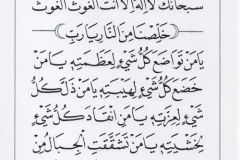 سبحانك لا إله إلا أنت الغوث الغوث
خلصنا من النار يارب
يا من تواضع كل شيء لعظمته يا من
خضع كل شيء لهيبته يا من ذل كل
شيء لعزته يا من انقاد كل شيء
لخشيته يا من تشققت الجبال من